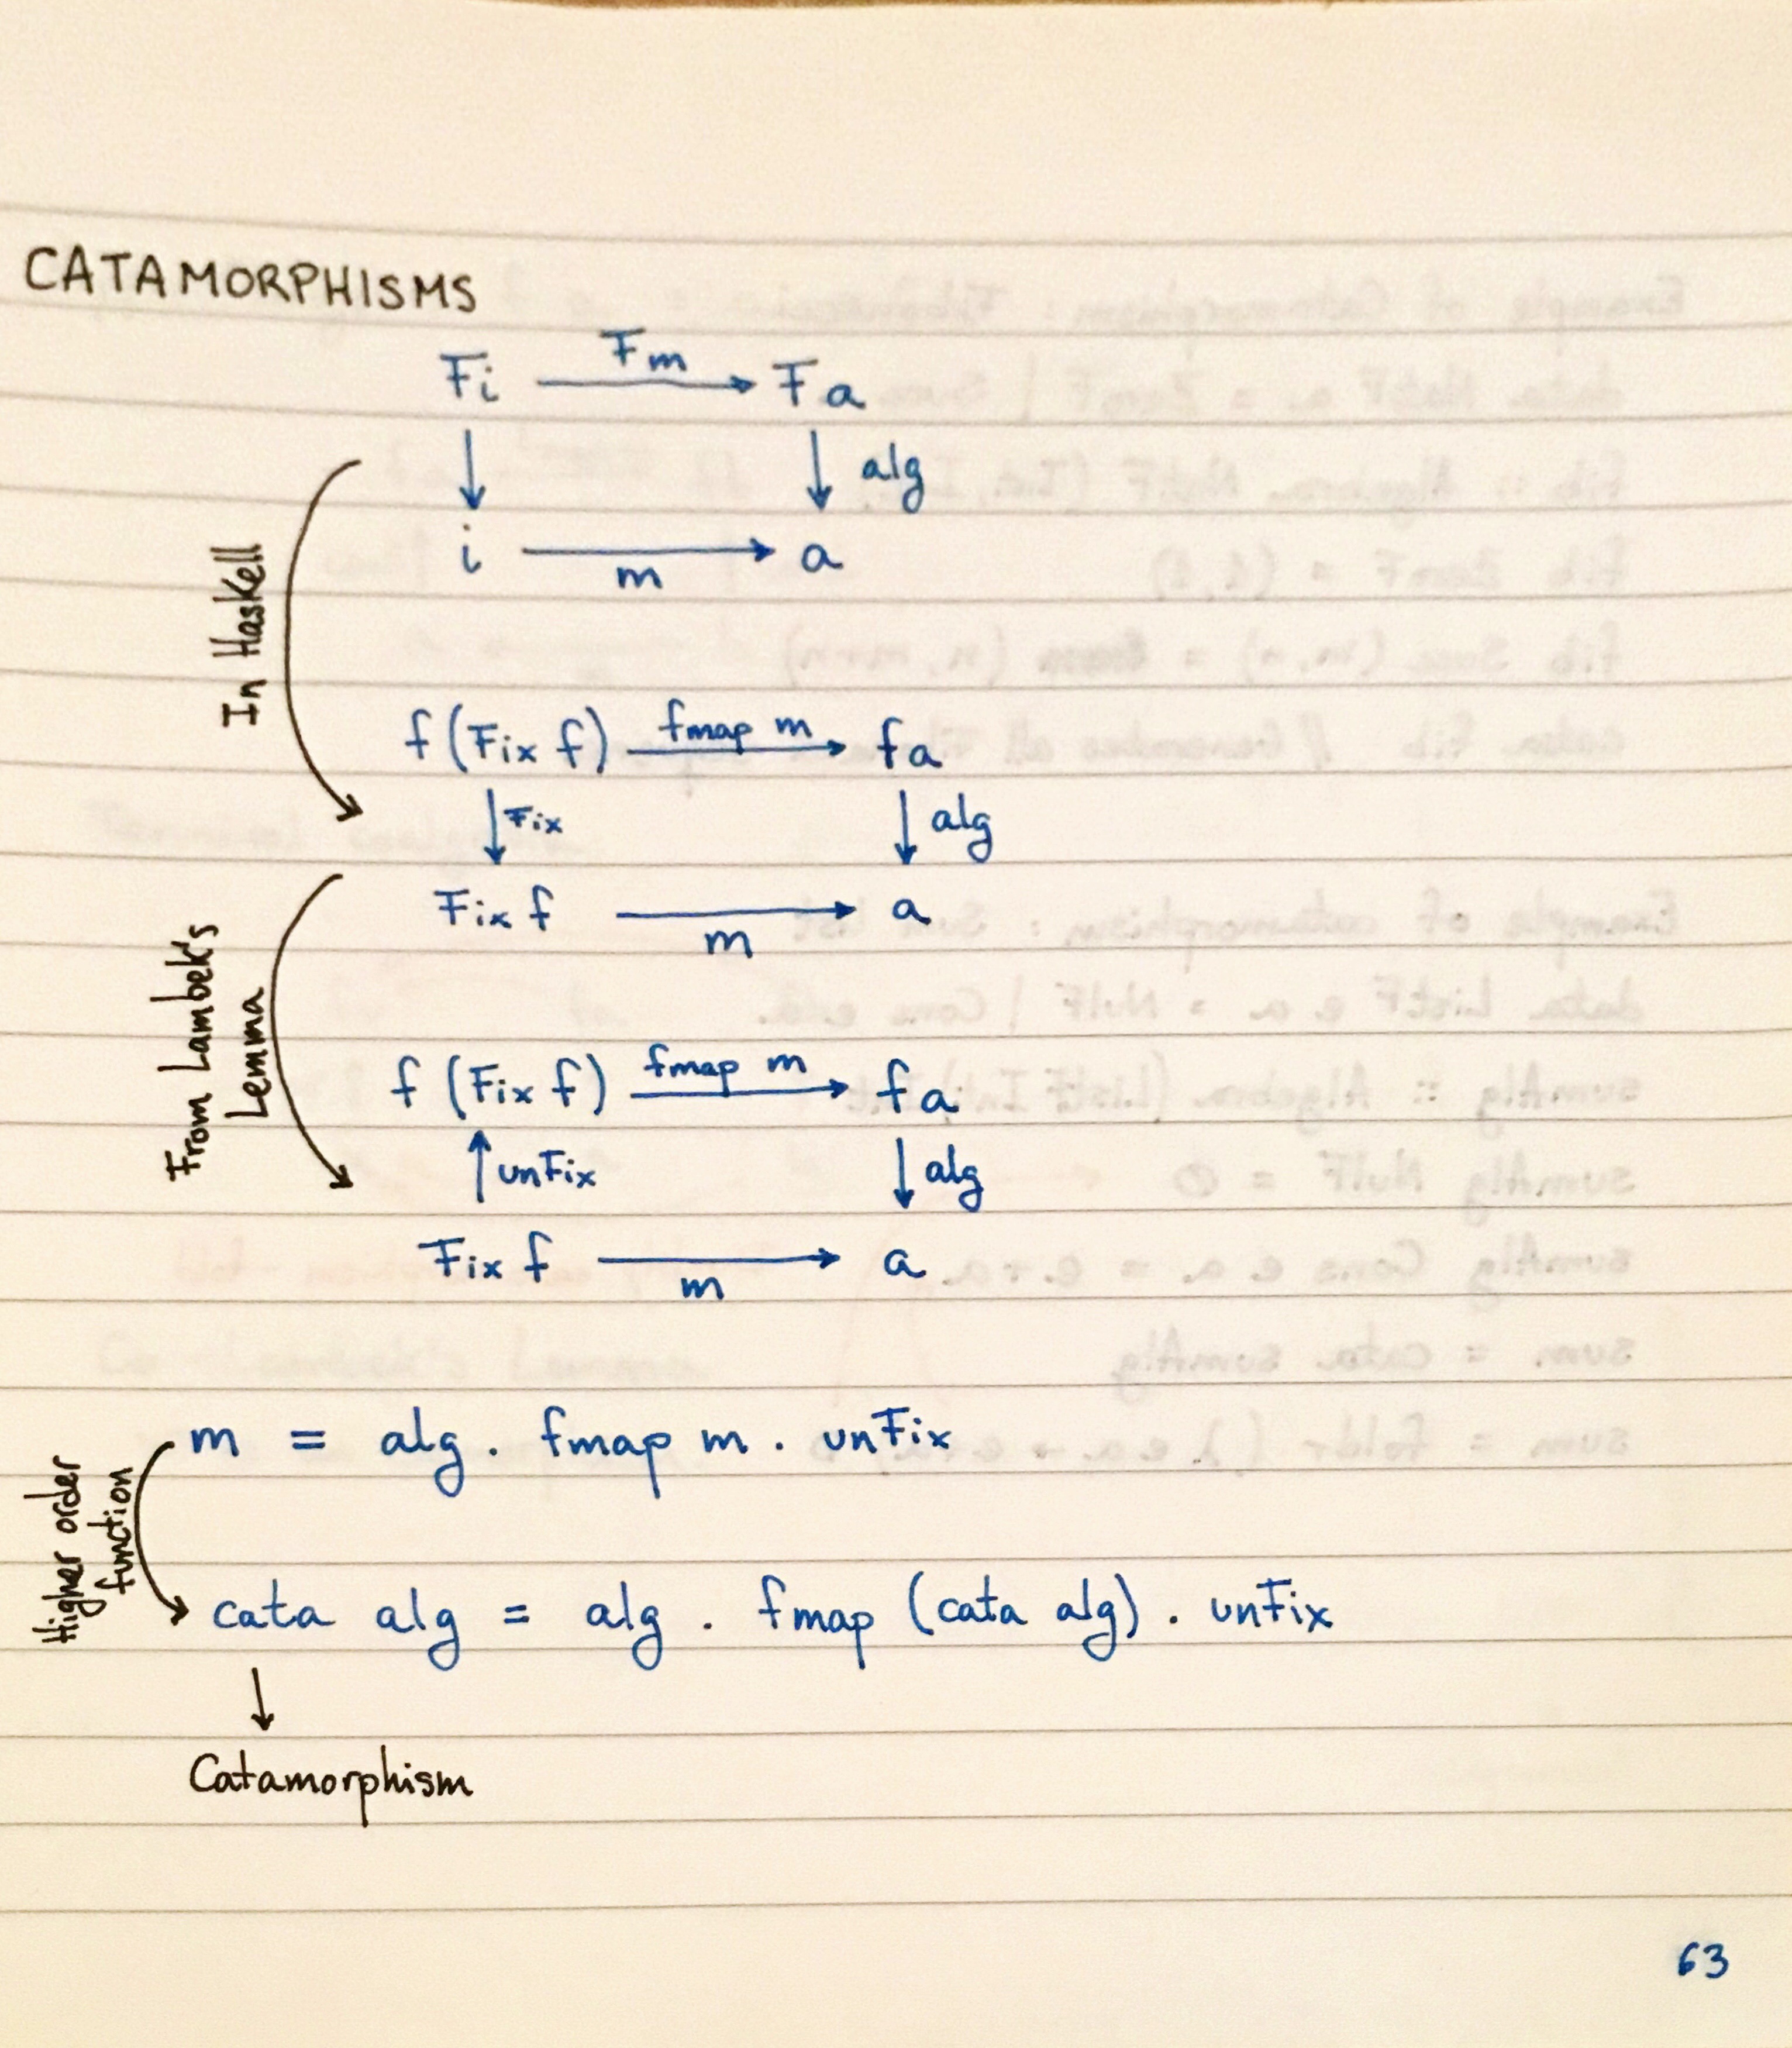 CATAMORPHISMS
Fm
Fi Fa
alg
i a
m
In Haskell
fmap m
f (Fix f) fa
Fix alg
Fix f a
m
From Lambek's
Lemma
fmap m
f (Fix f) fa
unFix alg
Fix f a
m
m = alg . fmap m . unFix
Higher order
function
cata alg = alg . fmap (cata alg) . unFix
Catamorphism
63